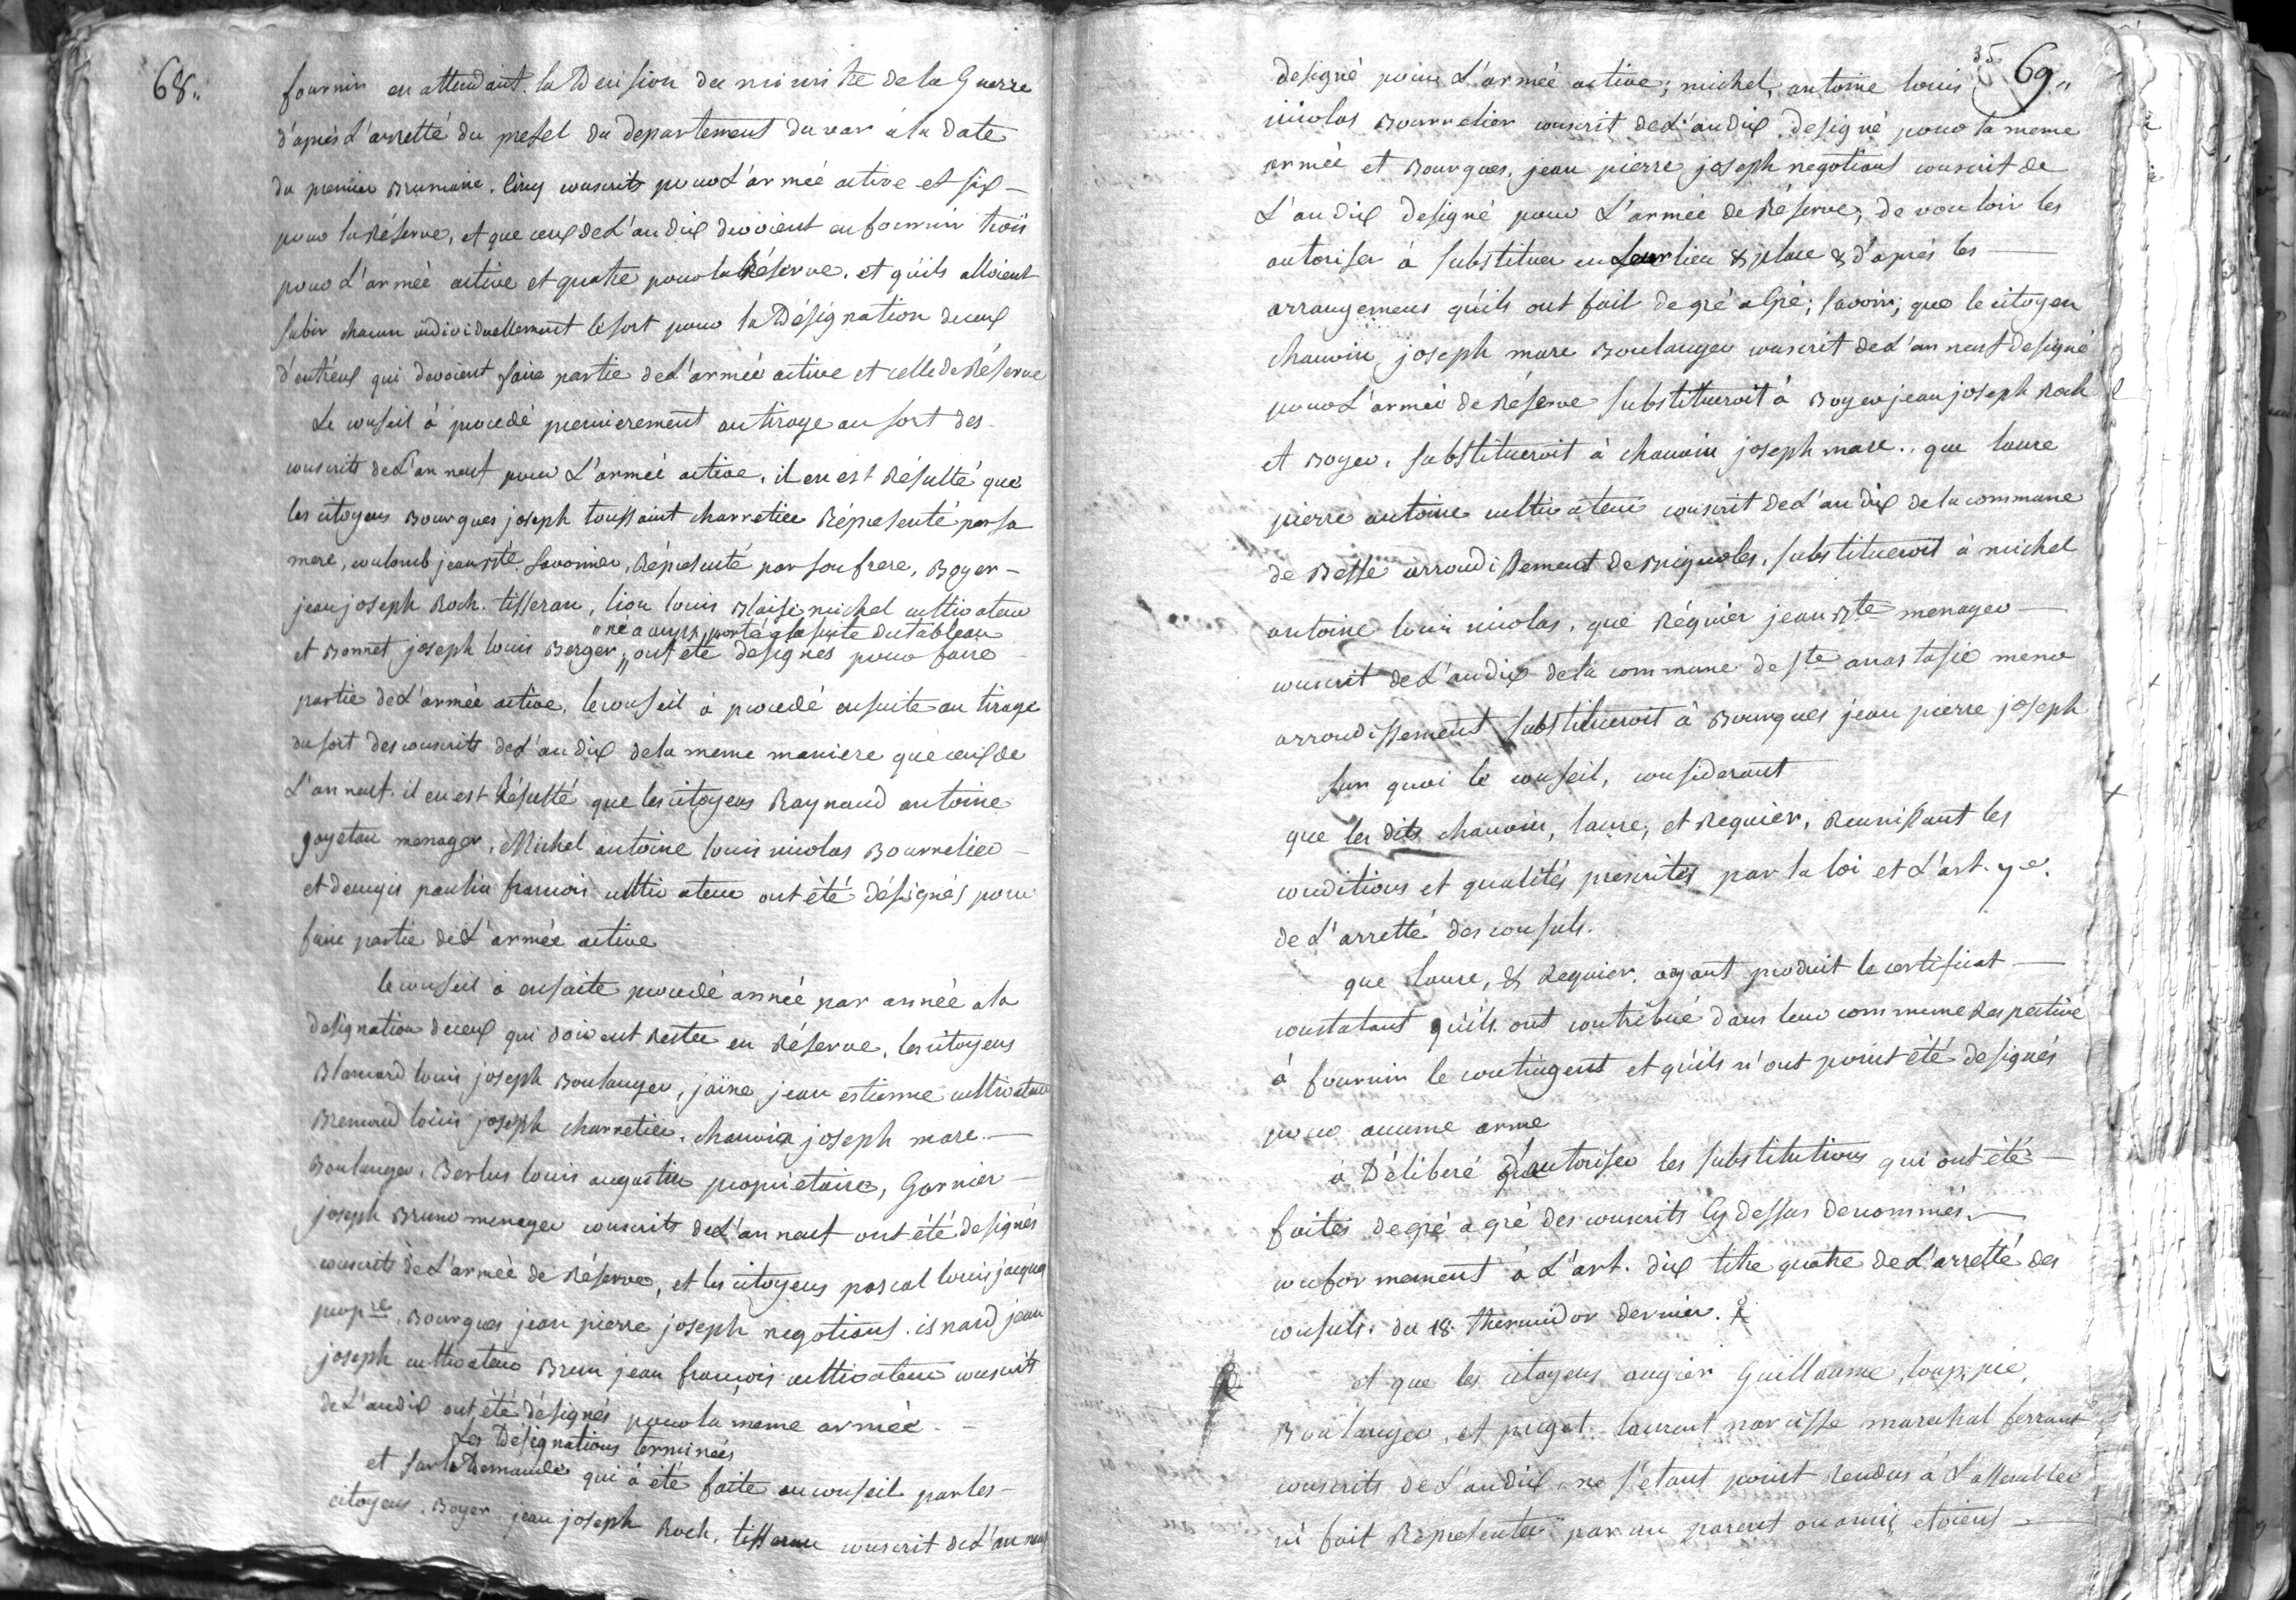 68..
fournir en attendant la Decision du ministre de la Guerre
d'après L'arretté du prefet du departement du var a la date
du premier Brumaire. Cinq conscrits pour L'armée active et six –
pour la Réserve, et que ceux de L'an dix devoient en fournir trois
pour L'armée active et quatre pour la Réserve. et qu'ils alloient
subir chacun individuellement le sort pour la Désignation de ceux
d'entreux qui devoient faire partie de L'armée active et celle de Réserve
Le conseil à procedé premierement au tirage au sort des –
conscrits de L'an neuf pour L'armée active. il en est Résulté que
les citoyens Bourgues joseph toussaint charretier Répresenté par sa
mere, coulomb jean Bte savonnier, Répresenté par son frere, Boyer –
jean joseph Roch. tisseran, lion louis Blaise michel cultivateur
porté a la suite du tableau
et Bonnet joseph louis Berger, ont été designés pour faire
partie de L'armée active, le conseil à procedé ensuite au tirage
du sort des conscrits de L'an dix de la meme maniere que ceux de
L'an neuf. il en est Résulté que les citoyens Raynaud antoine
gayetan menager, Michel antoine louis nicolas Bourrelier –
et paulin francois cultivateur ont été désignés pour
faire partie de L'armée active
le conseil à ensuite procedé année par année a la
designation de ceux qui doivent Rester en Réserve, les citoyens
Blancard louis joseph Boulanger, jaine jean estienne cultivateur
Bremond louis joseph charretier. chauvin joseph marc –
Boulanger. Berlus louis augustin proprietaire, Garnier –
joseph Bruno menager conscrits de L'an neuf ont été designés
conscrits de L'armée de Réserve, et les citoyens pascal louis jacques
propre. Bourgues jean pierre joseph negotiant. isnard jean
joseph cultivateur Brun jean françois cultivateur conscrits
de L'an dix ont été désignés pour la meme armée –
Les Désignations terminées
et sur la Demande qui à été faite au conseil par les –
citoyens. Boyer jean joseph Roch. tisseran conscrit de L'an neuf
35 69..
designé pour L'armée active; michel, antoine louis
nicolas Bourrelier conscrit de L'an dix. designé pour la meme
armée et Bourgues, jean pierre joseph negotiant conscrit de
L'an dix designé pour L'armée de Réserve, de vouloir les
autoriser à substituer en leur lieu & place & d'après les –
arrangemens qu'ils ont fait de gré a gré; savoir; que le citoyen
chauvin joseph marc Boulanger conscrit de L'an neuf designé
pour L'armée de Réserve substitueroit à Boyer jean joseph Roch
et Boyer. substitueroit à chauvin joseph marc.. que laure
pierre antoine cultivateur conscrit de L'an dix de la commune
de Besse arrondissement de Brignoles. substitueroit à michel
antoine louis nicolas. que Réquier jean Bte menager –
conscrit de L'an dix de la commune de Ste anastasie meme
arrondissement substitueroit à Bourgues jean pierre joseph
sur quoi le conseil, considerant
que les dits chauvin, laure, et Requier, Reunissant les
conditions et qualités prescrites par la loi et L'art. 9e.
de L'arretté des consuls.
que Laure, & Requier. ayant produit le certificat –
constatant qu'ils ont contribué dans leur commune Respective
à fournir le contingent et qu'ils n'ont point été designés
pour aucune arme
à Déliberé d'autoriser les substitutions qui ont été –
faites de gré a gré des conscrits Cy dessus denommés. –
conformement à L'art. dix titre quatre de L'arretté des
consuls. du 18. thermidor dernier.
et que les citoyens augier Guillaume,
Boulanger, et puget. laurent narcisse marechal ferrant
conscrits de L'an dix. ne s'etant point Rendus à L'assemblée
ni fait Representer par un parent ou ami, etoient –